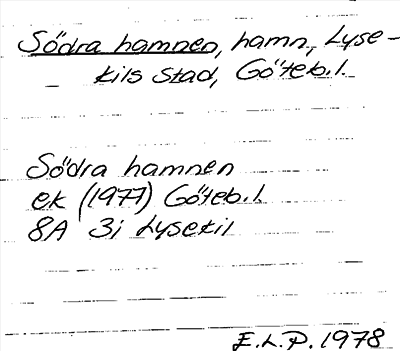 Södra hamnen, hamn, Lyse-
kils stad, Göteb.l.
Södra hamnen
ek (1977) Göteb.l.
8A 3i Lysekil
E.L.P. 1978